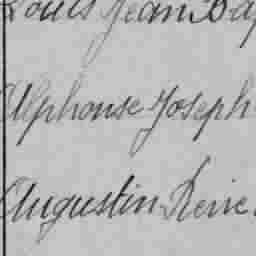 Louis Jean Bap
Alphonse Joseph
Augustin Pierre